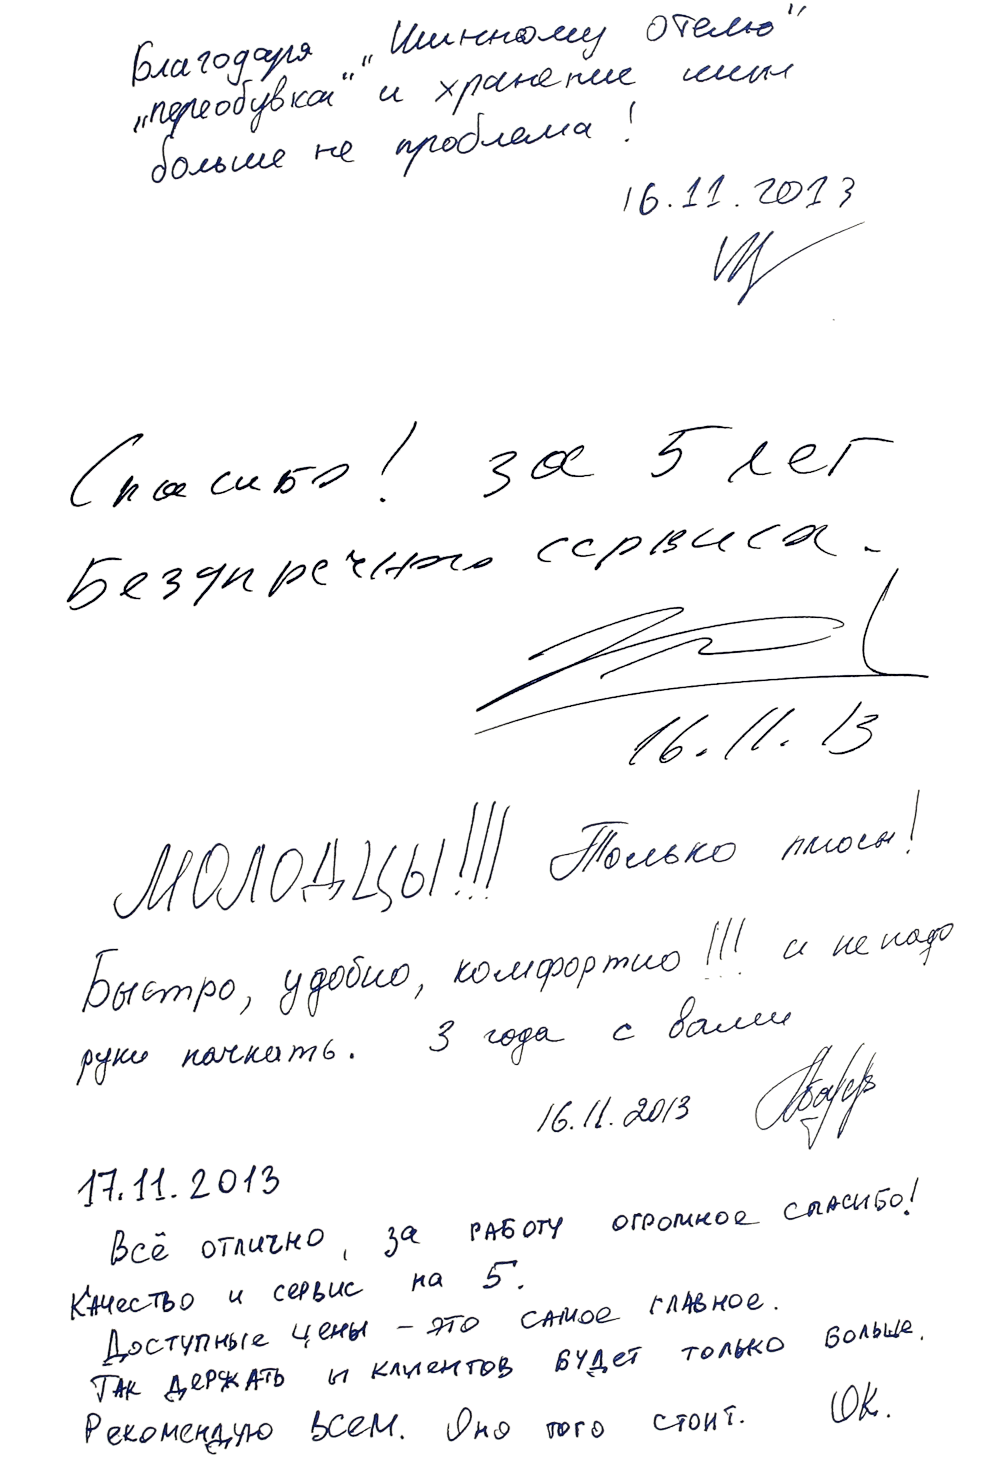 Благодаря „Шинному отелю"
„переобувка" и хранение шин
больше не проблема!
16.11.2013
Спасибо! за 5 лет
Безупречного сервиса.
16.11.13
МОЛОДЦЫ!!! Только плюсы!
Быстро, удобно, комфортно!!! и не надо
руки пачкать. 3 года с вами
16.11.2013
17.11.2013
Всё отлично, за работу огромное спасибо!
Качество и сервис на 5.
Доступные цены – это самое главное.
Так держать и клиентов будет только больше.
Рекомендую всем. Оно того стоит. ОК.